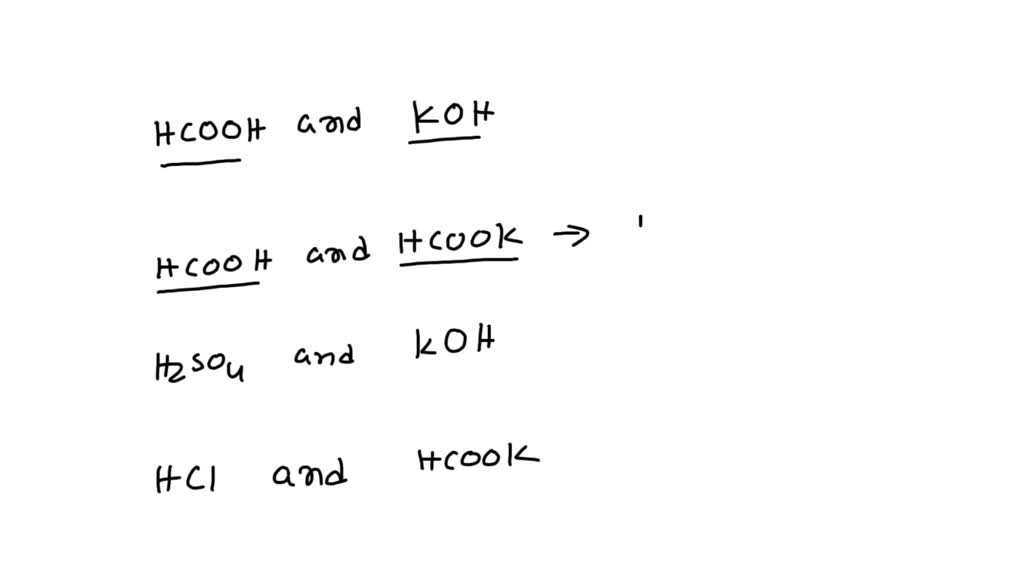 HCOOH and KOH
HCOOH and HCOOK →
H2SO4 and KOH
HCl and HCOOK